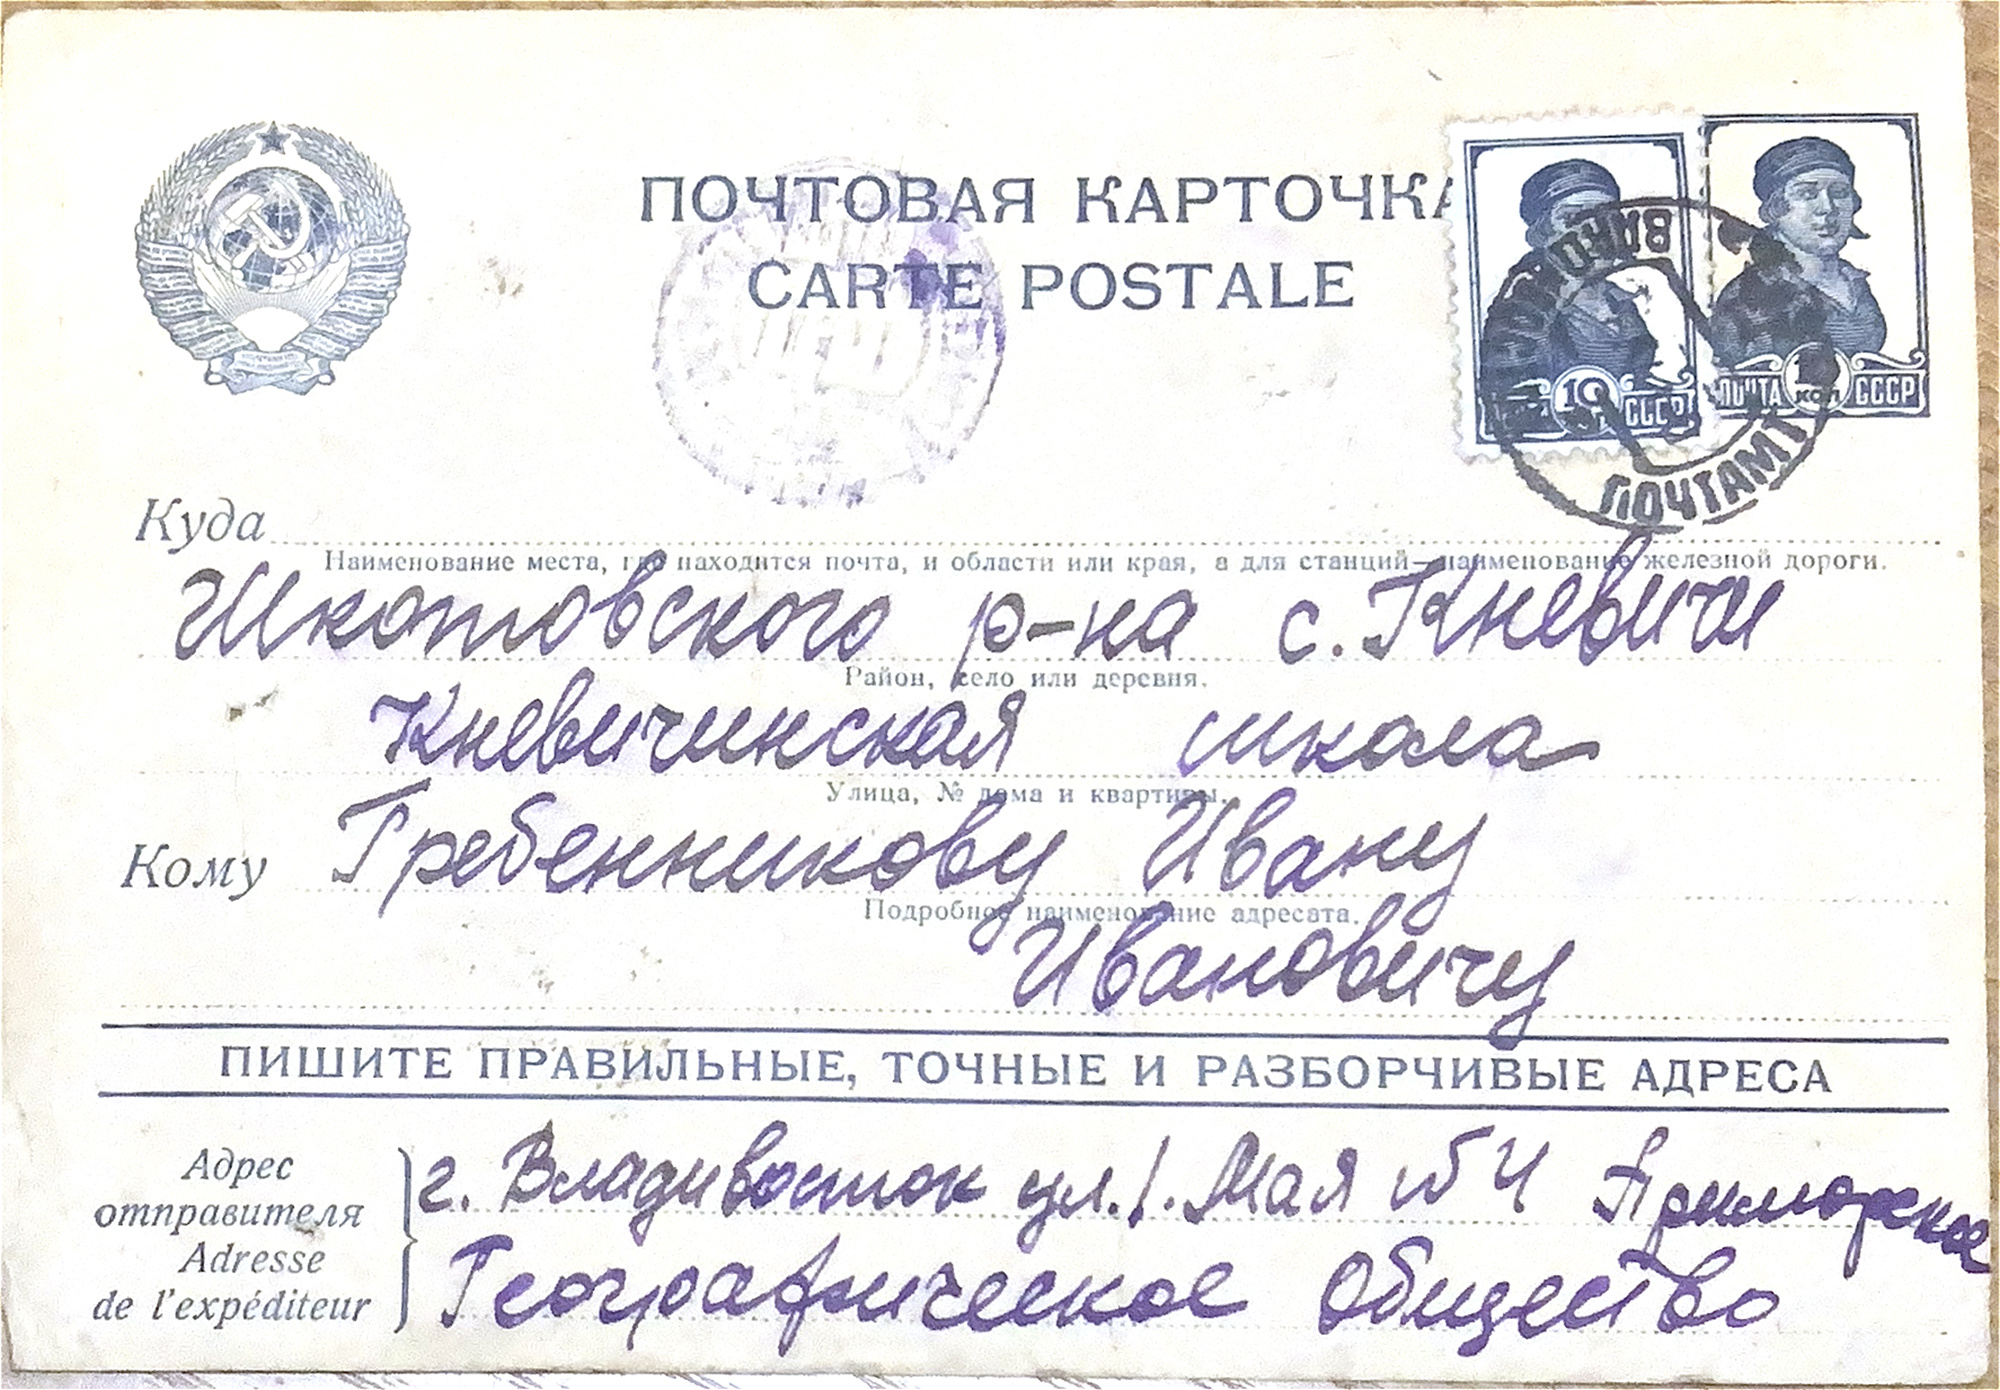 ПОЧТОВАЯ КАРТОЧКА
CARTE POSTALE
10 СССР
ПОЧТА КОП СССР
ПОЧТАМТ
Куда
Наименование места, где находится почта, и области или края, а для станций—наименование железной дороги.
Шкотовского р-на с. Кневичи
Район, село или деревня.
Кневичинская школа
Улица, № дома и квартиры.
Кому Гребенникову Ивану
Подробное наименование адресата.
Ивановичу
ПИШИТЕ ПРАВИЛЬНЫЕ, ТОЧНЫЕ И РАЗБОРЧИВЫЕ АДРЕСА
Адрес отправителя
Adresse de l'expéditeur
г. Владивосток ул. 1. Мая № 4 Приморское
Географическое Общество